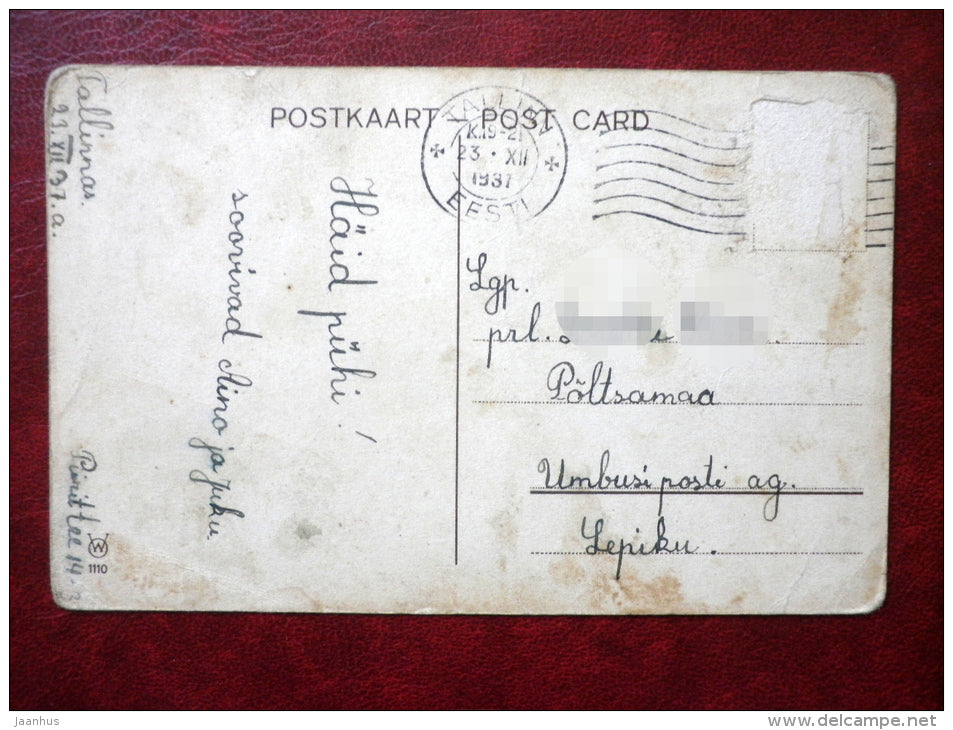 POSTKAART — POST CARD
TALLINN
K.19-21
23 · XII
1937
EESTI
Tallinnas.
23. XII 37. a.
Häid pühi!
soovivad Aino ja Juku.
Pirittee 14-3
W
1110
Lgp.
prl.
Põltsamaa
Umbusi posti ag.
Lepiku.
Jaanhus
www.delcampe.net